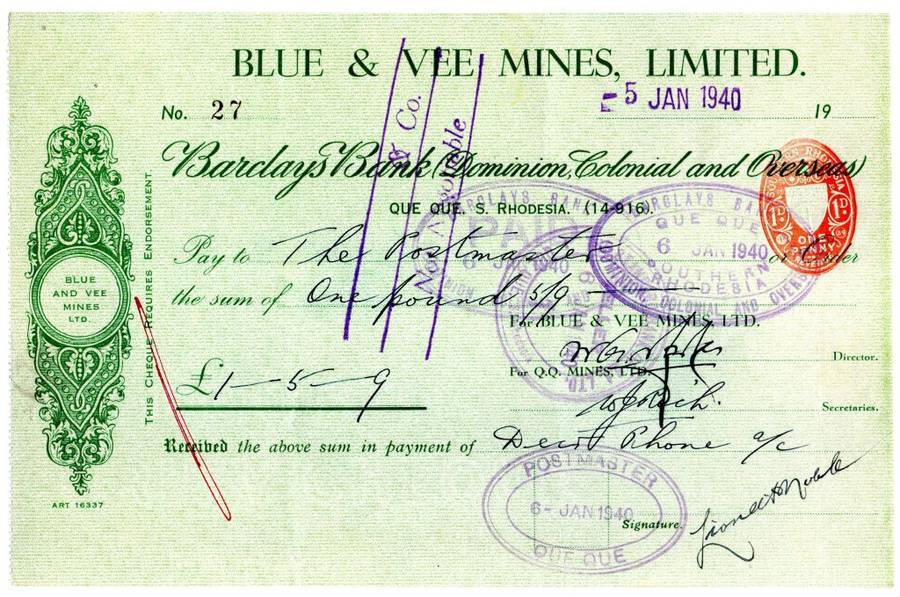 BLUE & VEE MINES, LIMITED.
- 5 JAN 1940
No. 27
19
& Co.
Not Negotiable
Barclays Bank (Dominion, Colonial and Overseas)
QUE QUE, S. RHODESIA. (14-916).
SOUTHERN RHODESIA
1D 1D
ONE PENNY
BARCLAYS BANK
QUE QUE
6 JAN 1940
SOUTHERN RHODESIA
DOMINION, COLONIAL AND OVERSEAS
BARCLAYS BANK
PAID
6 JAN 1940
Pay to The Postmaster or Order
the sum of One pound 5/9
BLUE
AND VEE
MINES
LTD.
THIS CHEQUE REQUIRES ENDORSEMENT.
For BLUE & VEE MINES, LTD.
Director.
For Q.Q. MINES, LTD.
£1-5-9
Secretaries.
Received the above sum in payment of Decr Phone a/c
POSTMASTER
6- JAN 1940
QUE QUE
Signature.
ART 16337